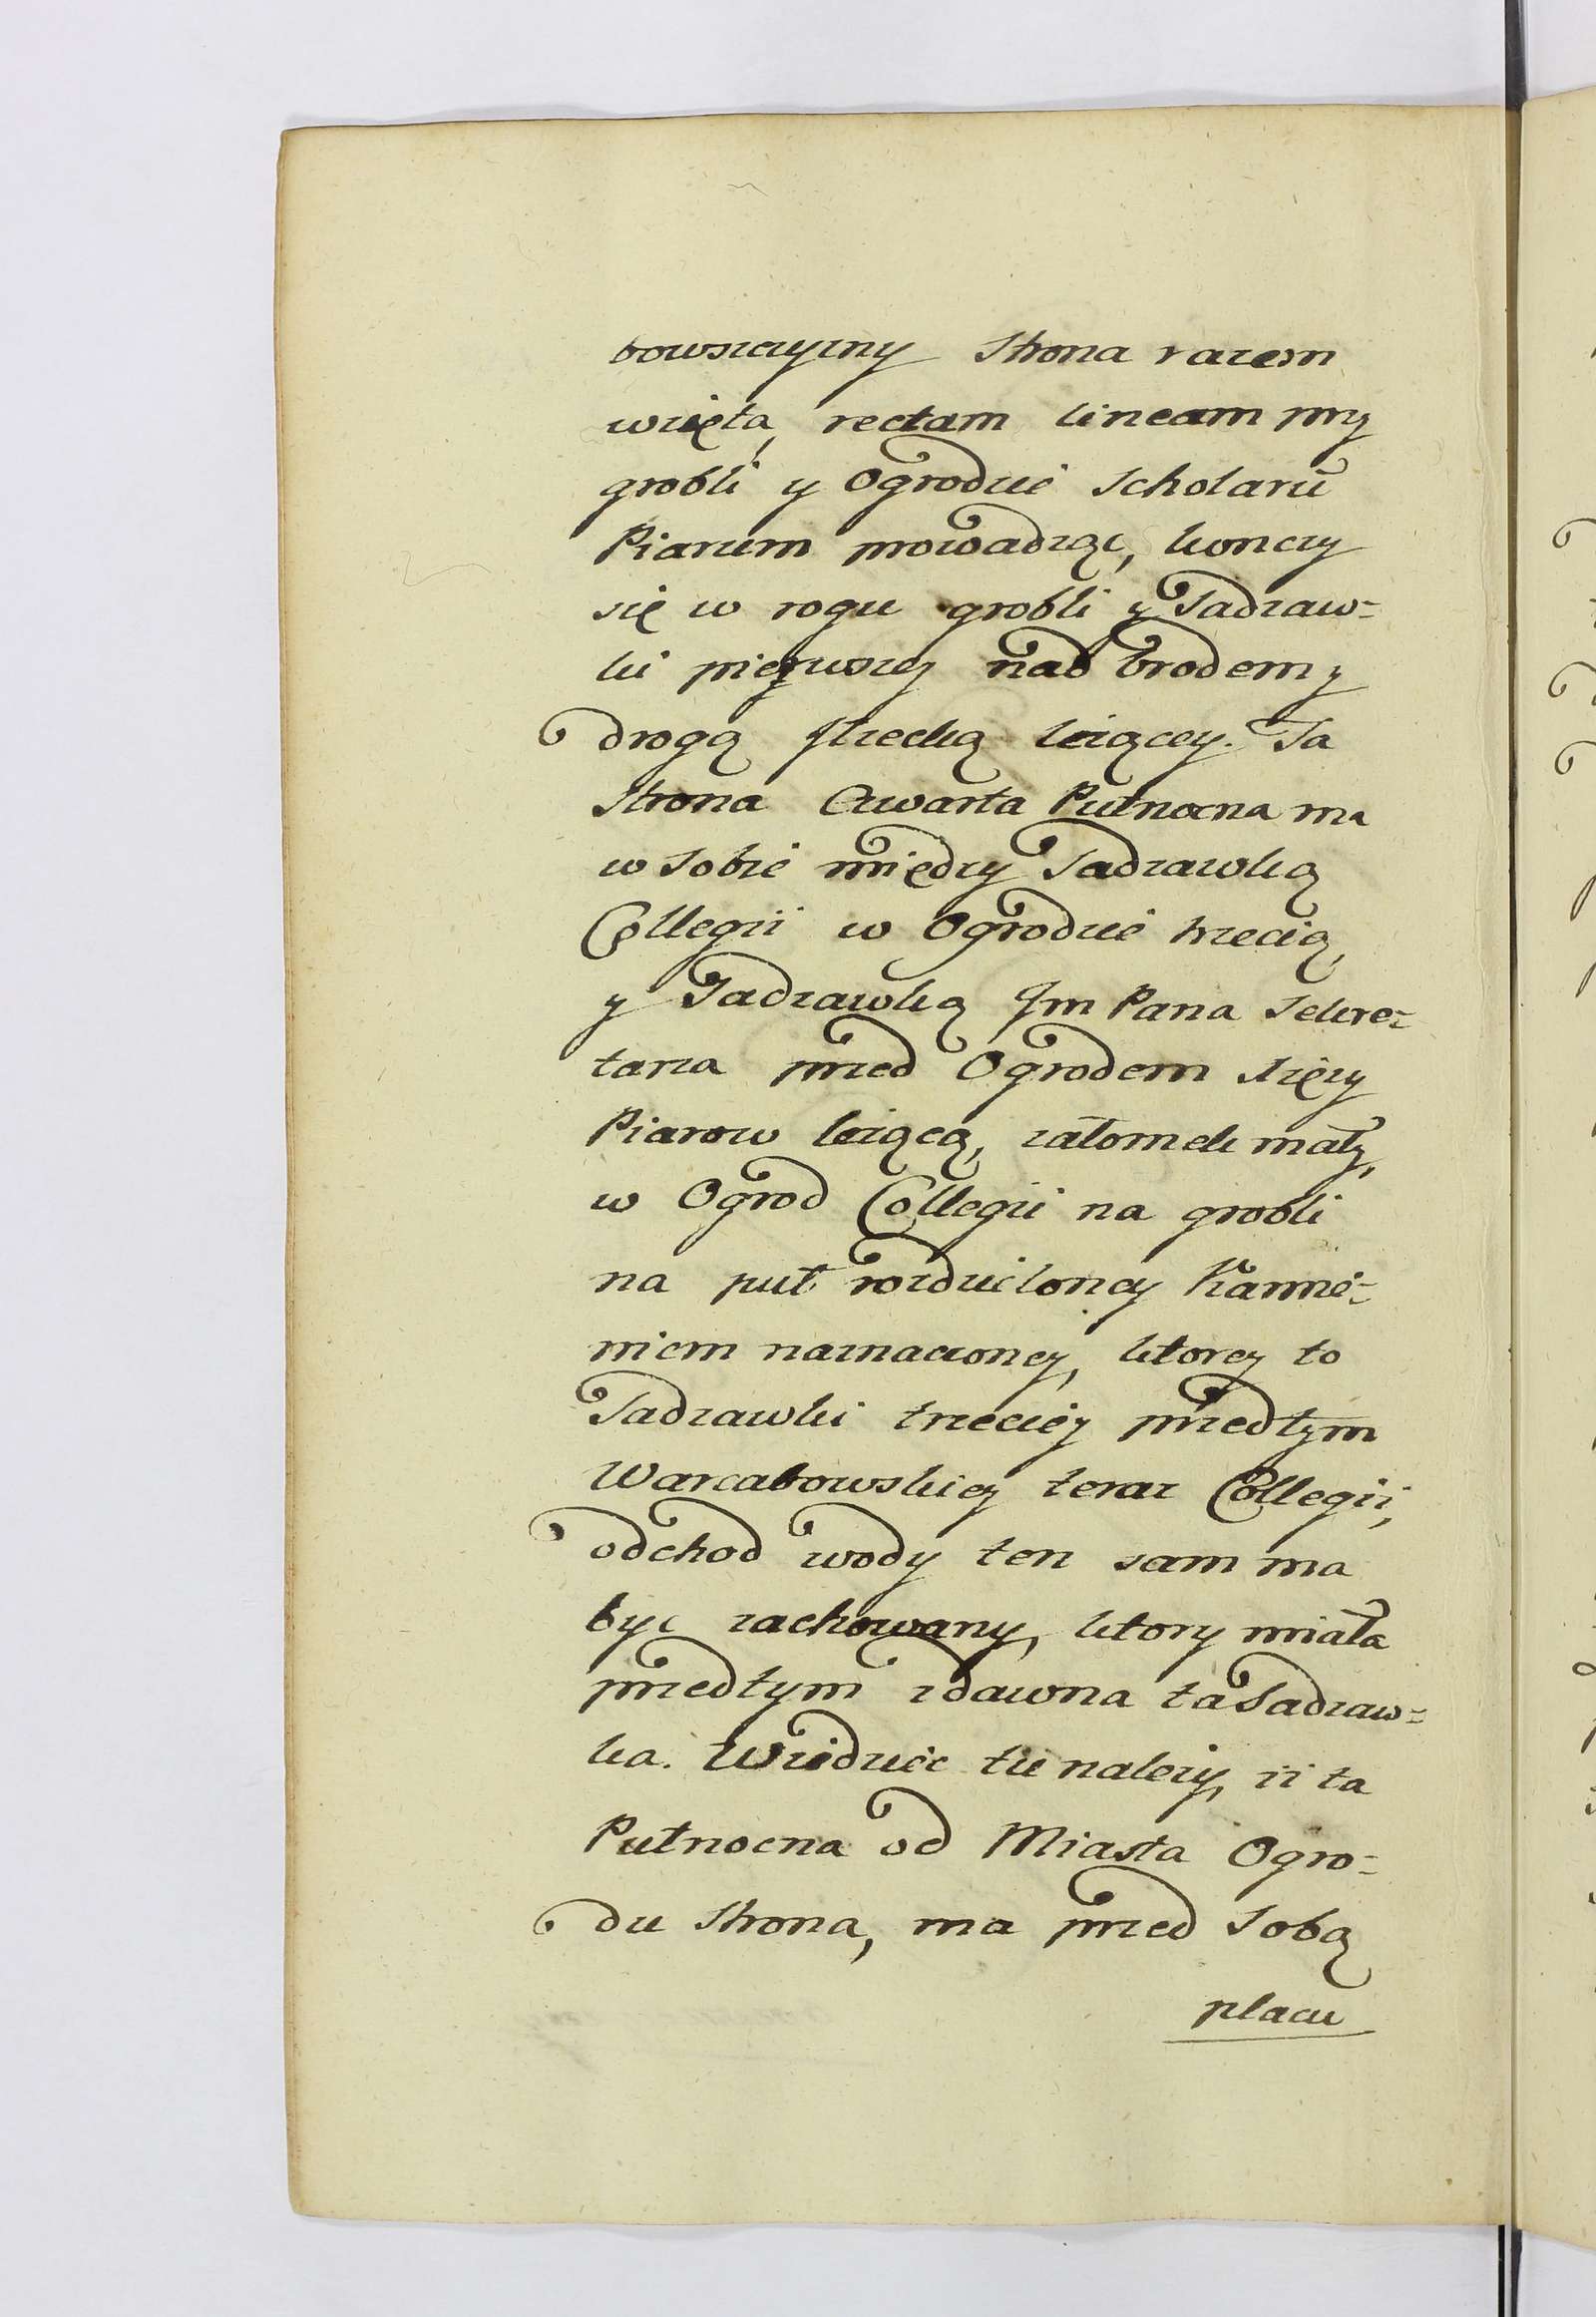 bowszczyzny Strona razem
wzięta, rectam lineam przy
grobli y Ogrodzie Scholarū
Piarum prowadząc, konczy
się w rogu grobli y Sadzaw=
ki pierwszey nad brodem y
drogą rzecką leżącey. Ta
Strona Czwarta Pułnocna ma
w sobie między Sadzawką
Collegii w Ogrodzie trzecią,
y Sadzawką Jm Pana Sekre=
tarza przed Ogrodem Xięży
Piarow leżącą, załomek mały,
w Ogrod Collegii na grobli
na puł rozdzieloney Kamie=
niem naznaczoney, ktorey to
Sadzawki trzeciey przedtym
Warcabowskiey teraz Collegii,
odchod wody ten sam ma
byc zachowany, ktory miała
przedtym zdawna ta Sadzaw=
ka. Wiedziec tu należy, iż ta
Pułnocna od Miasta Ogro=
du Strona, ma przed sobą
placu